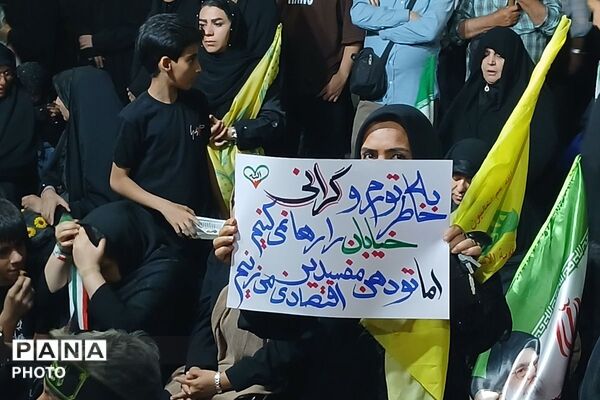 به خاطر تورم و گرانی
خیابان را رها نمی کنیم
اما تو دهن مفسدین
اقتصادی می زنیم
PANA
PHOTO